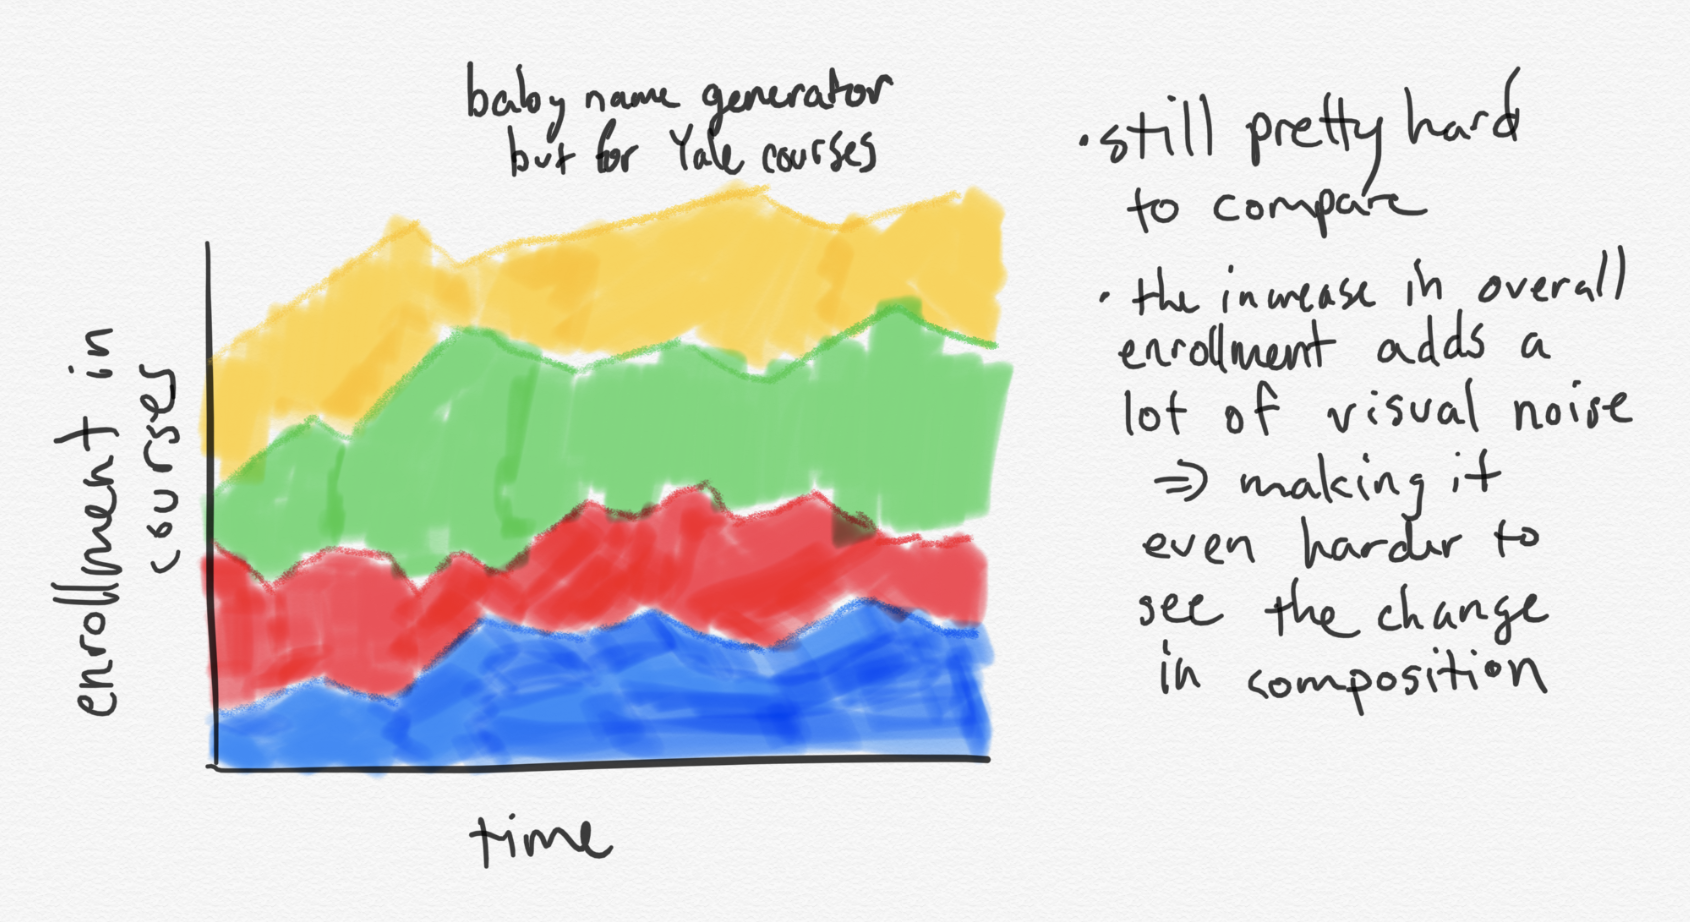 baby name generator
but for Yale courses
enrollment in
courses
time
· still pretty hard
to compare
· the increase in overall
enrollment adds a
lot of visual noise
⇒ making it
even harder to
see the change
in composition